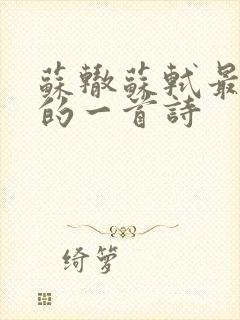 蘇轍蘇軾最
的一首詩
绮箩